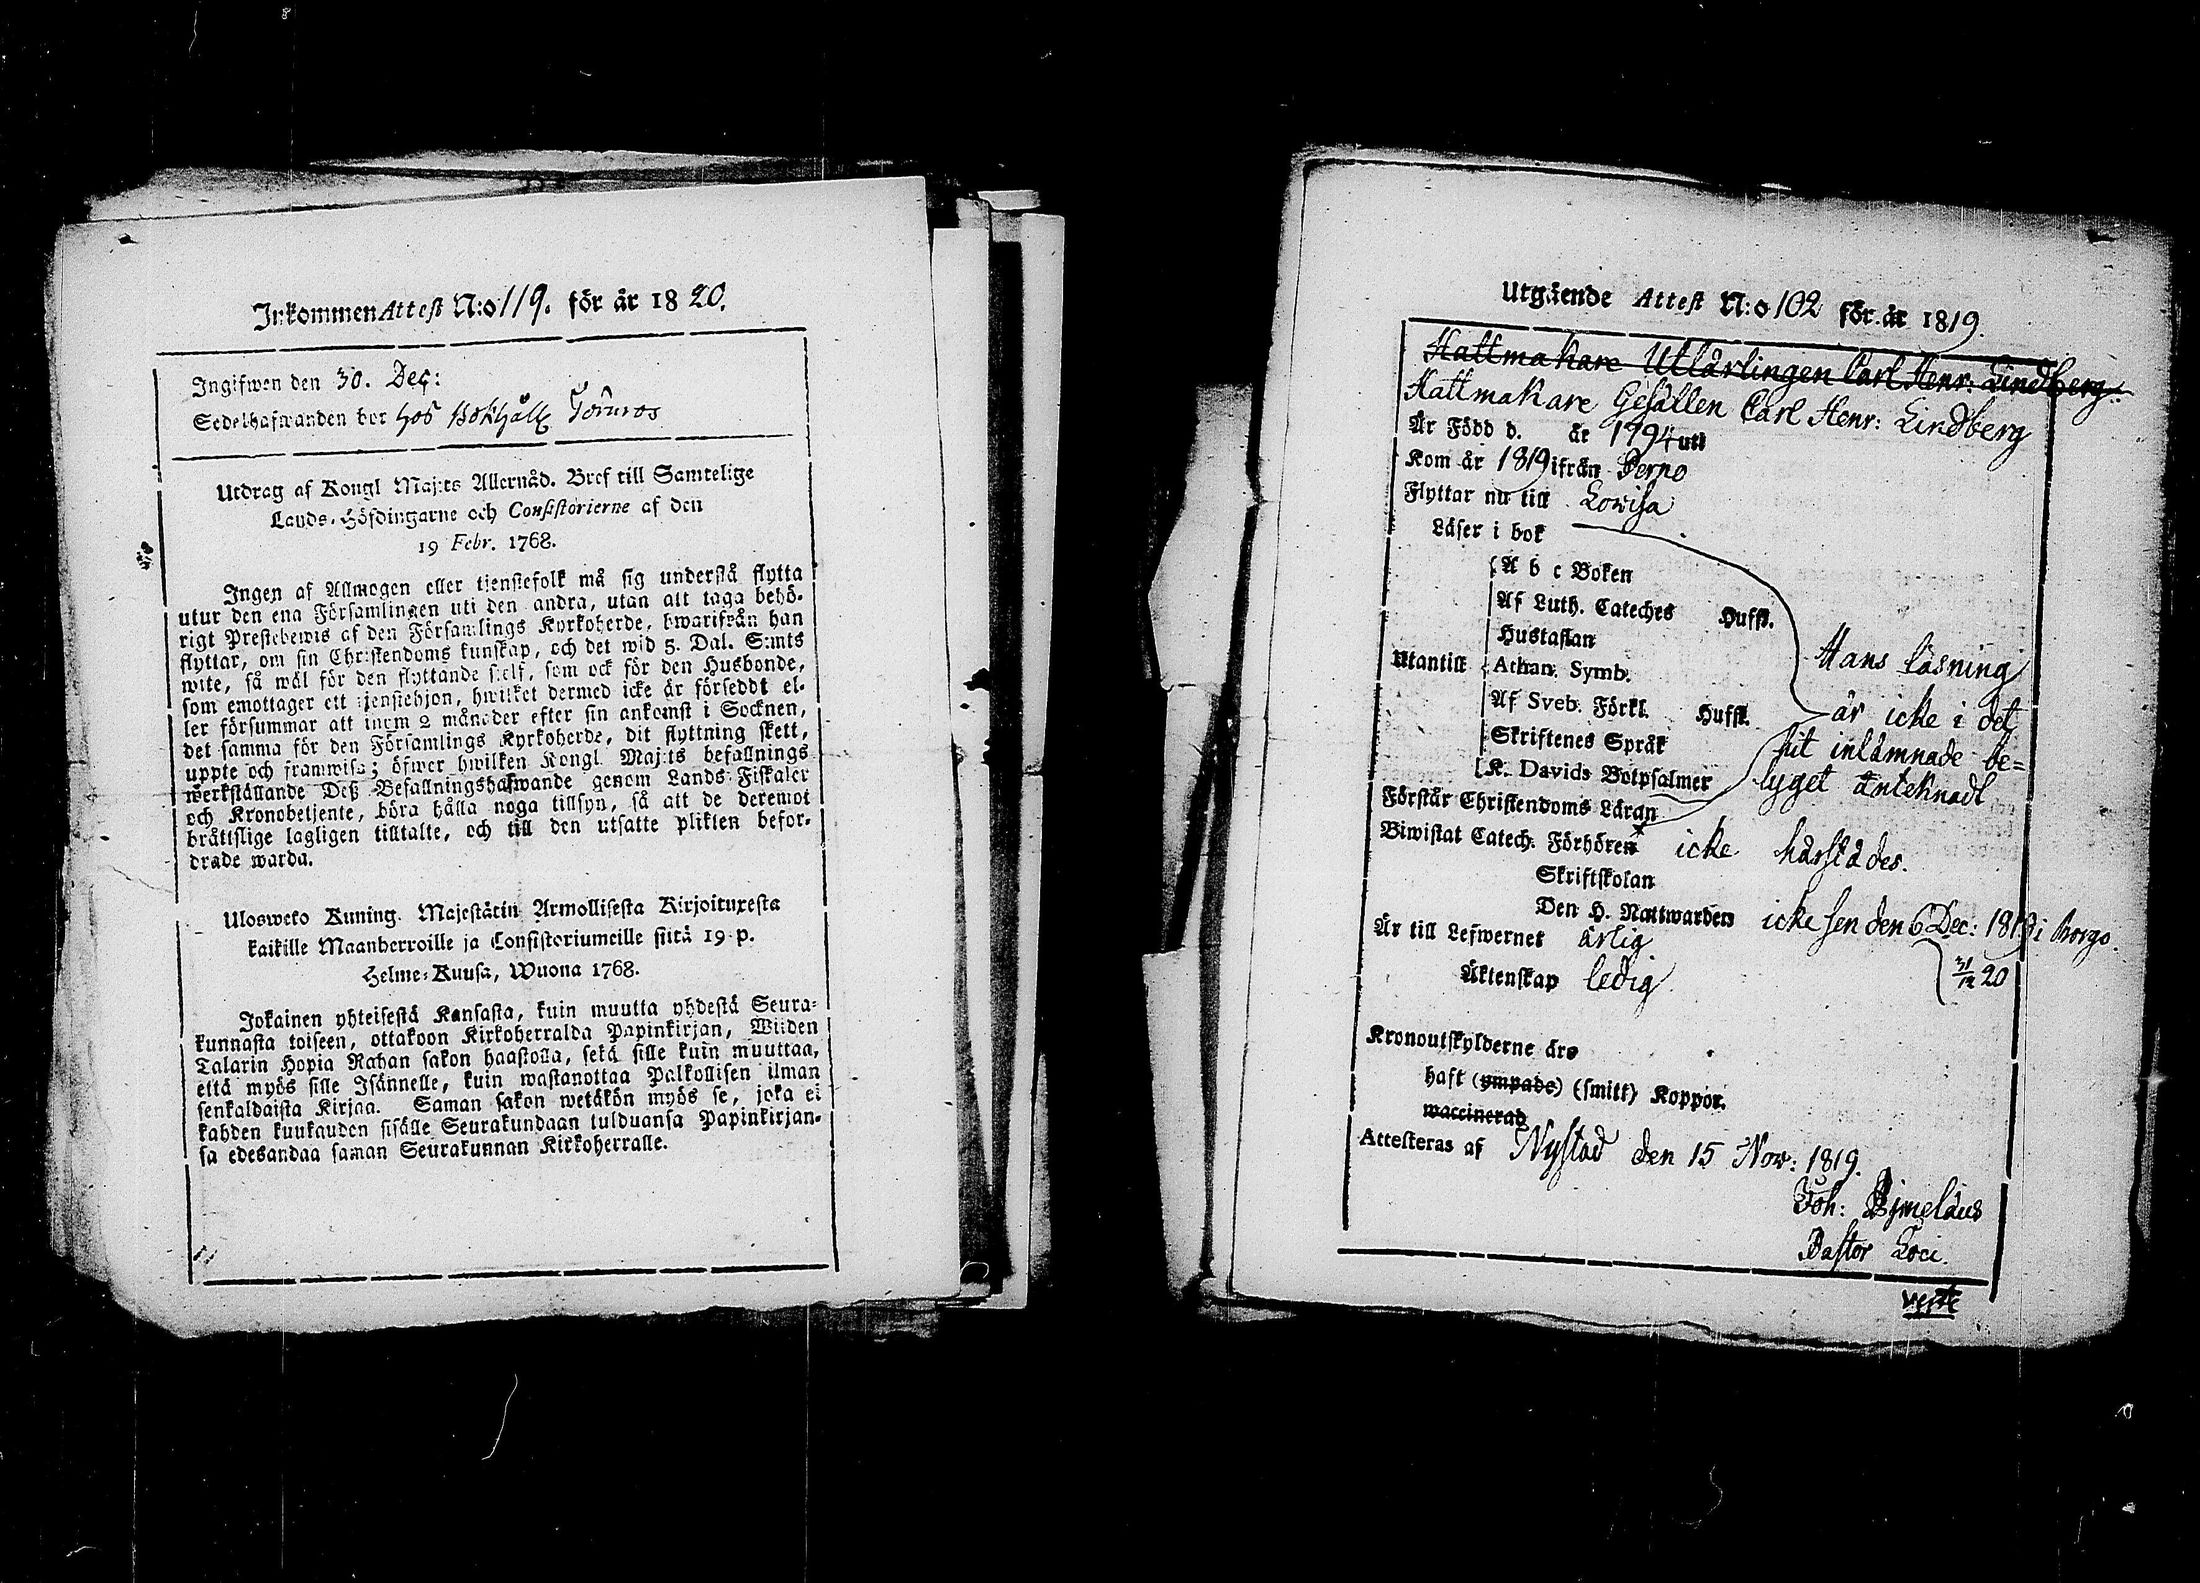 Inkommen Attest N:o 119. för år 1820.
Ingifwen den 30. Dec:
Sedelhafwanden bor hos Bokhåll Törnros
Utdrag af Kongl Maj:ts Allernåd. Bref till Samtelige
Lands-Höfdingarne och Consistorierne af den
19 Febr. 1768.
Ingen af Allmogen eller tjenstefolk må sig understå flytta
utur den ena Församlingen uti den andra, utan att taga behö-
rigt Prestebewis af den Församlings Kyrkoherde, hwarifrån han
flyttar, om sin Christendoms kunskap, och det wid 5. Dal. S:mts
wite, så wäl för den flyttande sjelf, som ock för den Husbonde,
som emottager ett tjenstehjon, hwilket dermed icke är förseddt el-
ler försummar att inom 2 månader efter sin ankomst i Socknen,
det samma för den Församlings Kyrkoherde, dit flyttning skett,
uppte och framwisa; öfwer hwilken Kongl. Maj:ts befallnings
werkställande Deß Befallningshafwande genom Lands-Fiskaler
och Kronobetjente, böra hålla noga tillsyn, så att de deremot
bråttslige lagligen tilltalte, och till den utsatte plikten befor-
drade warda.
Uloswето Kuning. Majestätin Armollisesta Kirjoituxesta
kaikille Maanherroille ja Consistoriumeille siitä 19 p.
Helme-Kuusa, Wuona 1768.
Jokainen yhteisestä Kansasta, kuin muutta yhdestä Seura-
kunnasta toiseen, ottakoon Kirkoherralda Papinkirjan, Wiiden
Talarin Hopia Rahan sakon haastolla, sekä sille kuin muuttaa,
että myös sille Isännelle, kuin wastanottaa Palkollisen ilman
senkaldaista Kirjaa. Saman sakon wetäkön myös se, joka ei
kahden kuukauden sisälle Seurakundaan tulduansa Papinkirjan-
sa edesandaa saman Seurakunnan Kirkoherralle.
Utgående Attest N:o 102 för år 1819.
Hattmakare Utlärlingen Carl Henr: Lindberg.
Hattmakare Gesällen Carl Henr: Lindberg
Är Född d. år 1794 uti
Kom år 1819 ifrån Perno
Flyttar nu till Lovisa
Läser i bok
A b c Boken
Af Luth. Cateches Hufst.
Hustaflan
Utantill Athan. Symb.
Af Sveb. Förkl. Hufst.
Skriftenes Språk
K. Davids Botpsalmer
Hans läsning
är icke i det
hit inlämnade be-
tyget anteknadt
Förstår Christendoms Läran
Biwistat Catech. Förhören icke härstädes.
Skriftskolan
Den H. Nattwarden icke sen den 6 Dec: 1818 i Borgo.
Är till Lefwernet ärlig
31/12 20
Äktenskap ledig
Kronoutskylderne äro
haft (ympade) (smitt) Koppor.
waccinerad
Attesteras af Nystad den 15 Nov: 1819.
Joh: Bjmelæus
Pastor Loci.